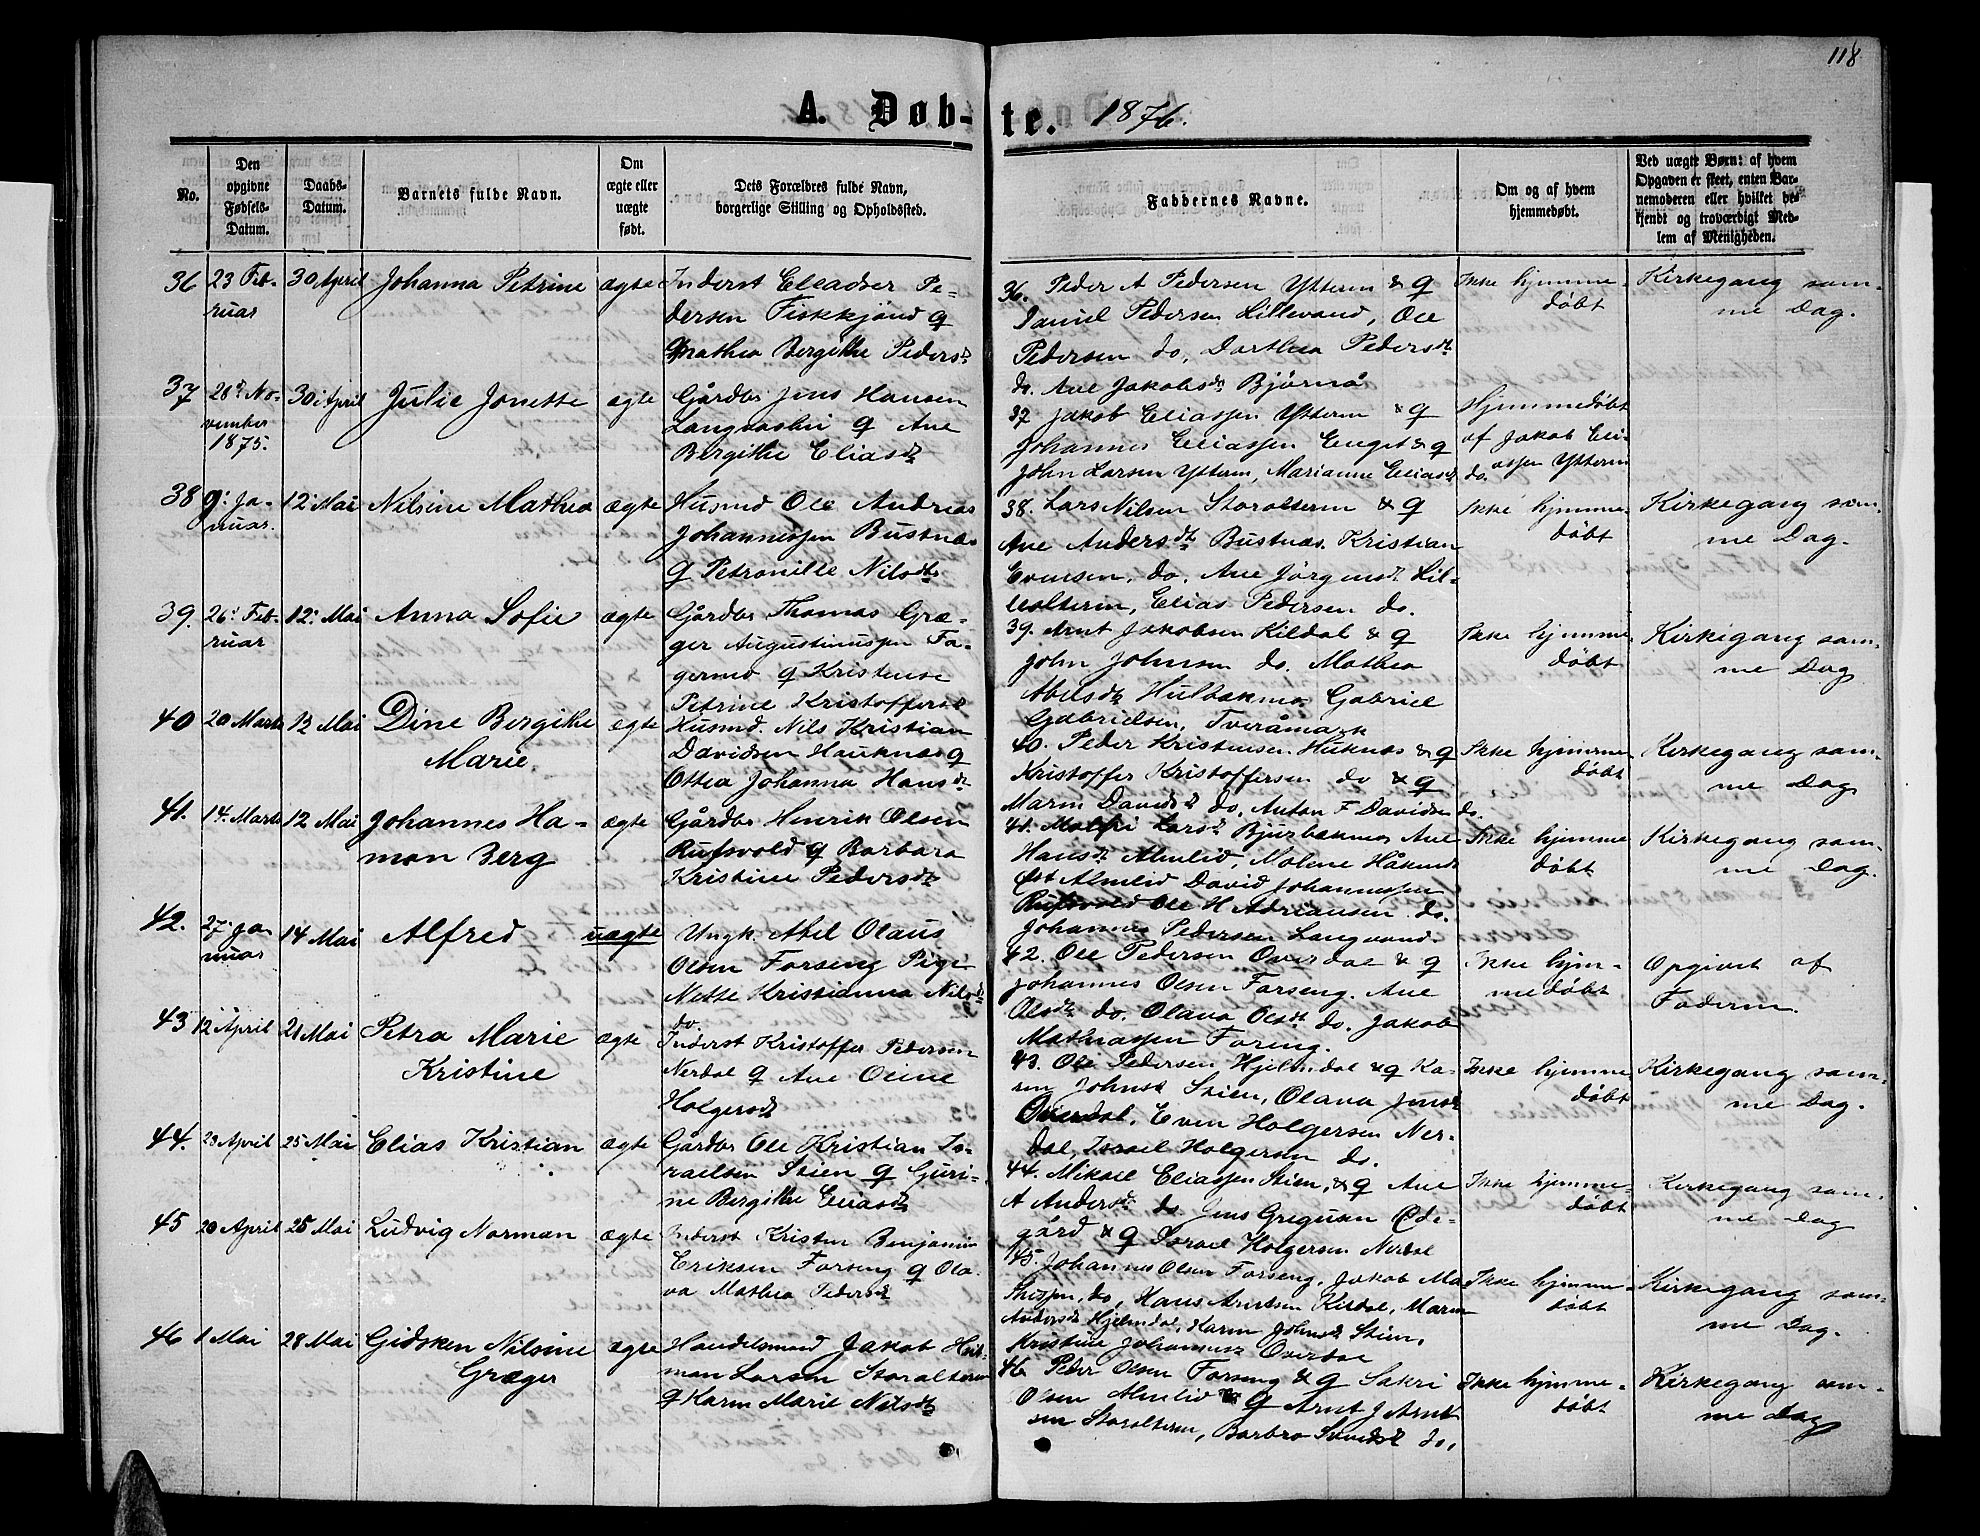 118
A. Døb-te. 1876.
No.
Den opgivne Fødsels-Datum.
Daabs-Datum.
Barnets fulde Navn.
Om ægte eller uægte født.
Dets Forældres fulde Navn, borgerlige Stilling og Opholdssted.
Faddernes Navne.
Om og af hvem hjemmedøbt.
Ved uægte Børn: af hvem Opgaven er skeet, enten Barnemoderen eller hvilket bekjendt og troværdigt Medlem af Menigheden.
36
23 Feb-
ruar
30 April
Johanna Petrine
ægte
Inderst Eleadser Pe-
dersen Fiskkjönd &
Mathea Bergithe Pedersdtr
36. Peder A Pedersen Ytteren & &
Daniel Pedersen Lillevand, Ole
Pedersen do, Dorthea Pedersdtr
do. Ane Jakobsdtr Bjørnå
Ikke hjemme-
døbt
Kirkegang sam-
me Dag.
37
28de No-
vember
1875.
30 April
Julie Jonette
ægte
Gårdbr Jens Hansen
Langvashei & Ane
Bergithe Eliasdtr
37 Jakob Eliassen Ytteren & &
Johannes Eliassen Enget & &
John Larsen Ytteren, Marianne Eliasdtr do.
Hjemmedøbt
af Jakob Eli-
assen Ytteren
38
9. Ja-
nuar.
12. Mai
Nilsine Mathea
ægte
Husmd Ole Andreas
Johannessen Bustnæs
& Petronille Nilsdtr
38. Lars Nilsen Storalteren & &
Ane Andersdtr Bustnæs. Kristian
Evensen, do, Ane Jörgensdtr Lil-
lealteren, Elias Pedersen do.
Ikke hjemme-
døbt
Kirkegang sam-
me Dag.
39.
26. Feb-
ruar
12. Mai
Anna Sofie
ægte
Gårdbr Thomas Græ-
ger Augustinussen Fa-
germo & Kristense
Petrine Kristoffersdtr
39. Arnt Jakobsen Kildal & &
John Johnsen do. Mathea
Abelsdtr Hulbækmo Gabriel
Gabrielsen, Tveråmark
Ikke hjemme-
døbt
Kirkegang sam-
me Dag
40
20 Marts
12 Mai
Dine Bergithe
Marie.
ægte
Husmd. Nils Kristian
Davidsen Hauknæs &
Ottea Johanna Hansdtr
40. Peder Kristensen Huknæs & &
Kristoffer Kristoffersen do & &
Maren Davidsdtr do, Anton F Davidsen do.
Ikke hjemme-
døbt
Kirkegang sam-
me Dag
41.
14. Marts
12 Mai
Johannes Ha-
man Berg
ægte
Gårdbr Henrik Olsen
Rufsvold & Barbara
Kristine Pedersdtr
41. Malfri Larsdtr Bjurbækmo, Ane
Hansdtr Almlid, Malene Håkens
dtr Almlid David Johannessen
Rufsvold Ole H Adriansen do.
Johannes Pedersen Langvand.
Ikke hjemme
døbt
Kirkegang sam-
me Dag.
42.
27. Ja-
nuar
14 Mai
Alfred
uægte
Ungk. Abel Olaus
Olsen Forseng Pige
Nette Kristianna Nilsdtr
do.
42. Ole Pedersen Overdal & &
Johannes Olsen Forseng. Ane
Olsdtr do. Olava Olsdtr do. Jakob
Mathiassen Foreng.
Ikke hjem-
medøbt
Opgivet af
Faderen.
43
12 April
21 Mai
Petra Marie
Kristine
ægte
Inderst Kristoffer Pedersen
Nerdal & Ane Oline
Holgersdtr
43. Ole Pedersen Hjelmdal & & Ka-
ren Johnsdtr Stien, Olava Jensdtr
Overdal, Even Holgersen Ner-
dal, Israel Holgersen do.
Ikke hjemme
døbt
Kirkegang sam-
me Dag.
44.
23 April
25 Mai
Elias Kristian
ægte
Gårdbr Ole Kristian Is-
raelsen Stien & Guri-
ne Bergithe Eliasdtr
44. Mikael Eliassen Stien, & & Ane
A Andersdtr do Jens Gregusen Øde-
gård & & Israel Holgersen Nerdal
Ikke hjemme-
døbt
Kirkegang sam-
me Dag
45
20 April
25 Mai
Ludvig Norman
ægte
Inderst Kristen Benjamin
Eriksen Forseng & Ola-
va Mathea Pedersdtr
45. Johannes Olsen Forseng, Jakob Ma-
thissen, do, Hans Arntsen Kildal, Maren
Andersdtr Hjelmdal, Karen Johnsdtr Stien,
Kristine Johannesdtr Overdal
Ikke hjemme-
døbt
Kirkegang sam-
me Dag.
46
1 Mai
28 Mai
Gidsken Nilsine
Græger
ægte
Handelsmand Jakob Heit-
man Larsen Storalteren
& Karen Marie Nilsdtr
46 Peder Olsen Forseng & & Sakri
Olsen Almlid & & Arnt J Arnt-
sen Storalteren, Barbro Svendsdtr do.
Ikke hjemme-
døbt
Kirkegang sam-
me Dag